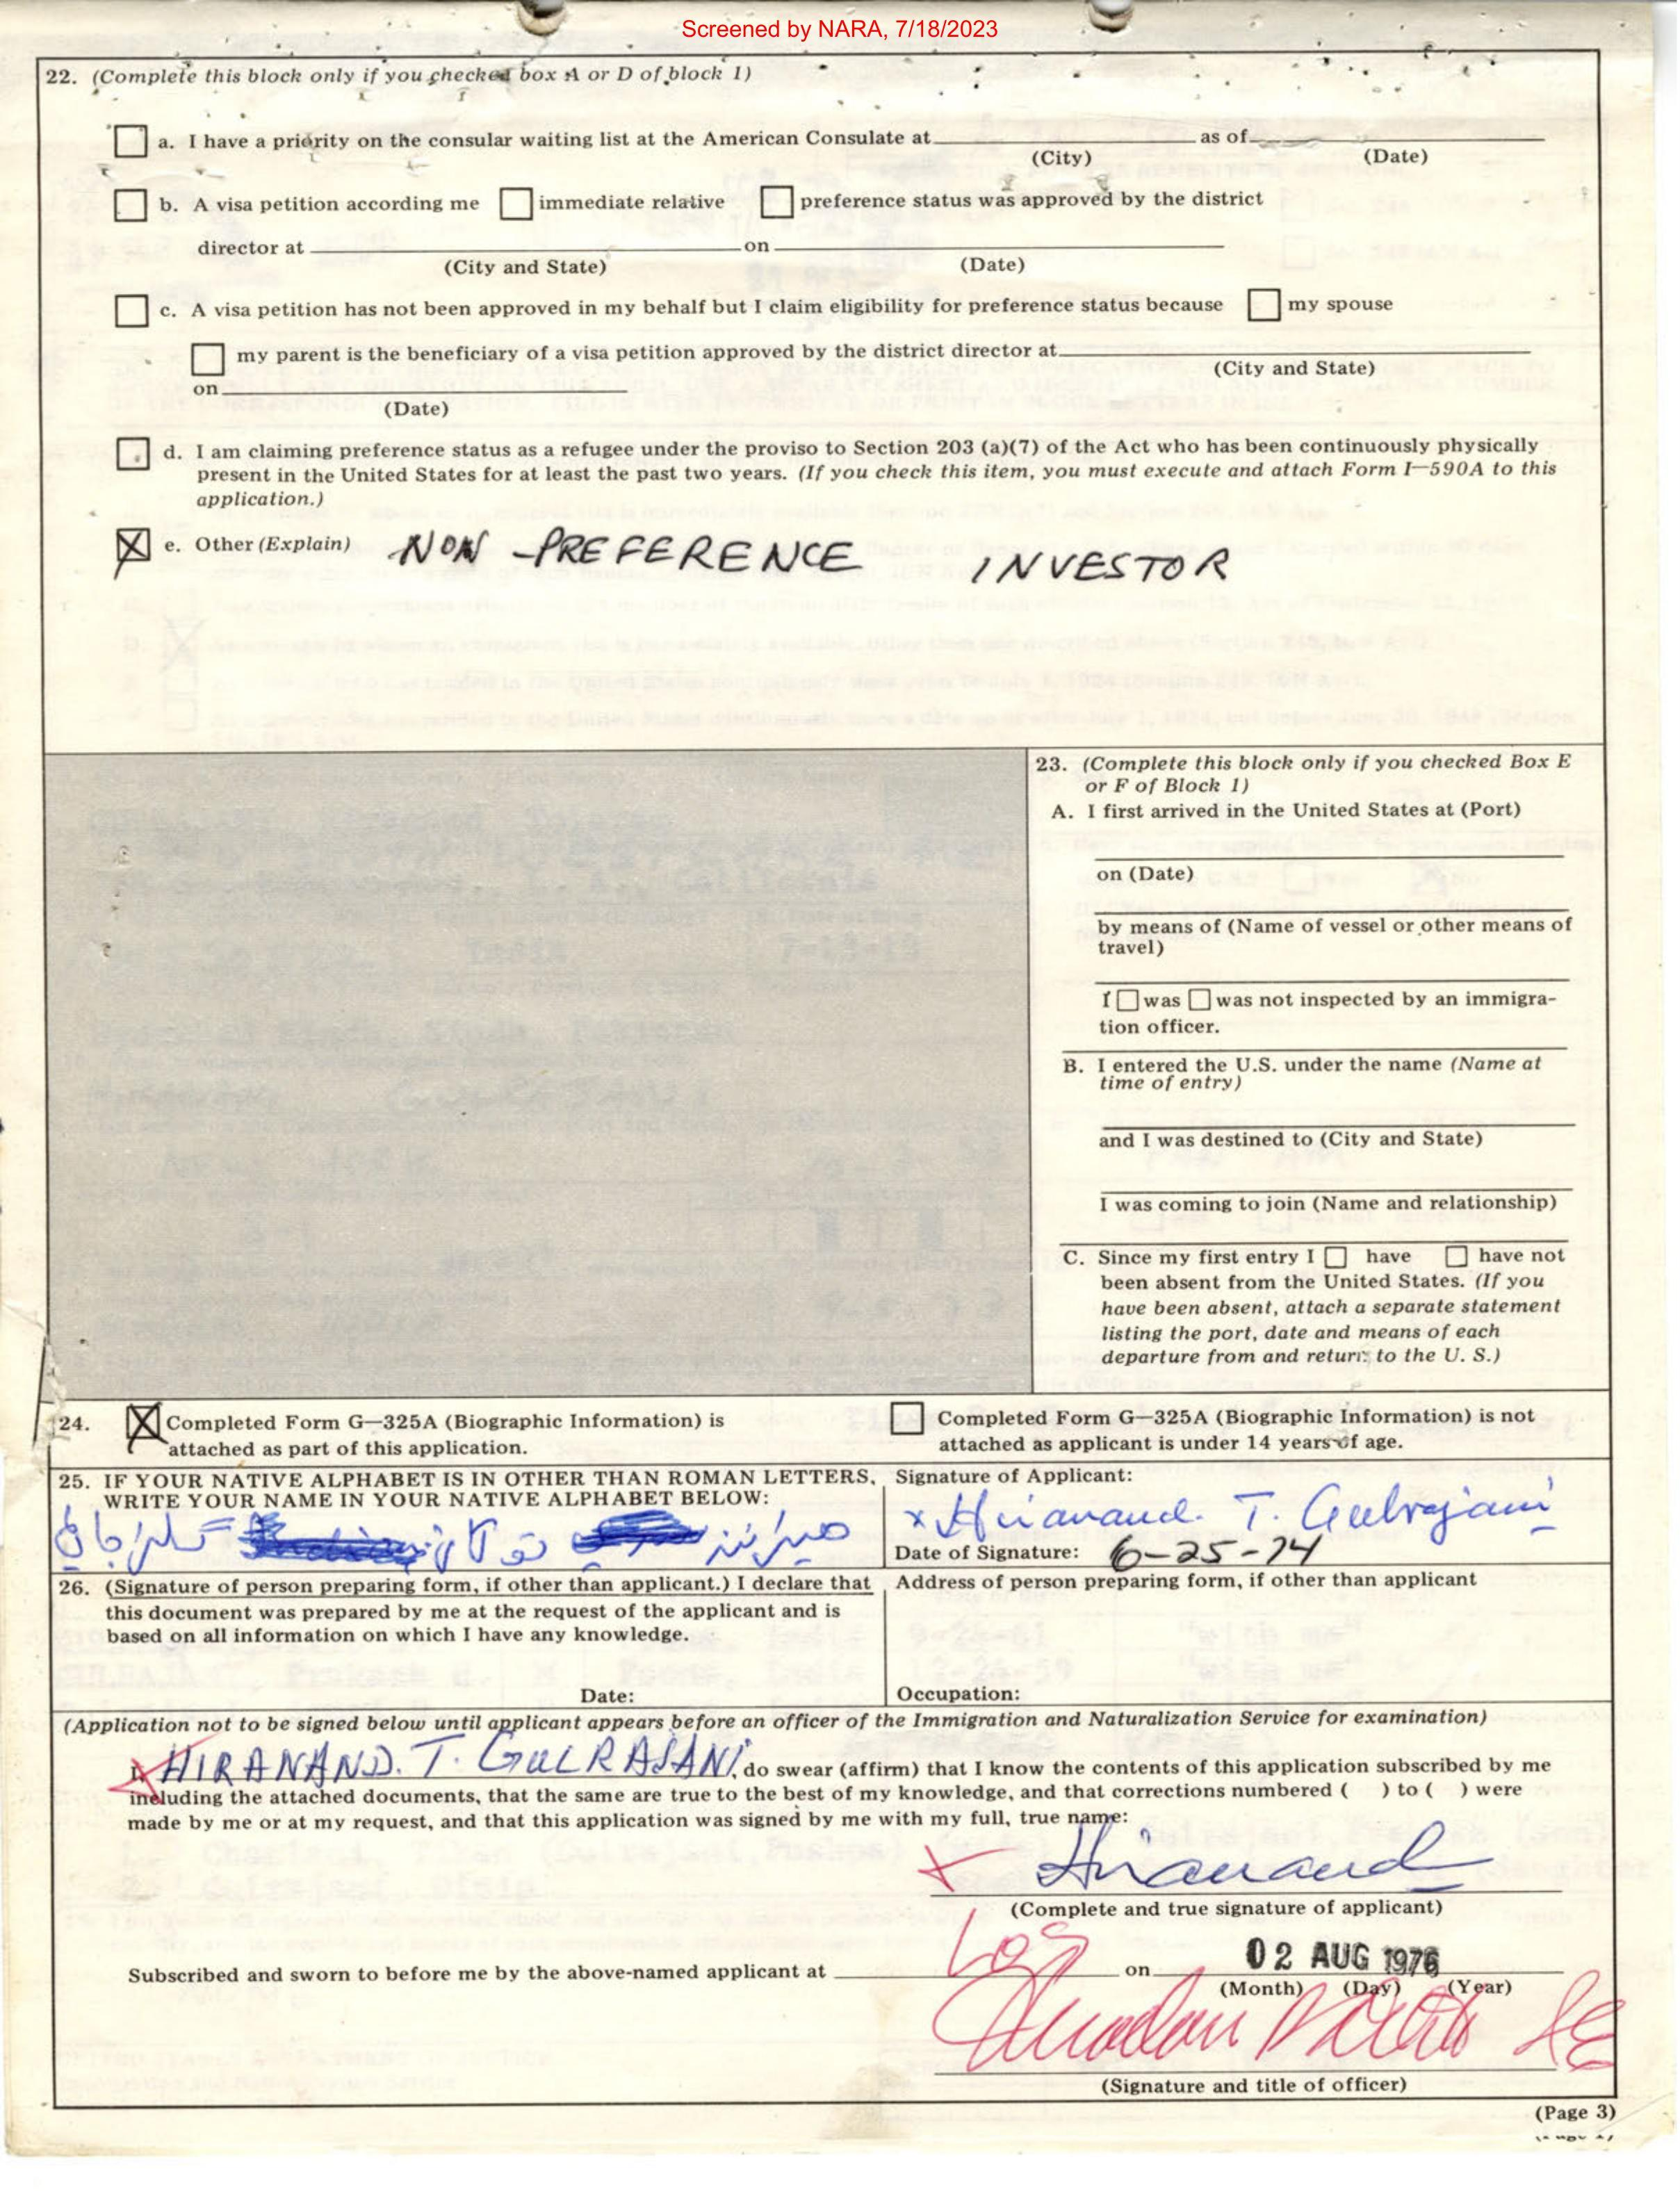 Screened by NARA, 7/18/2023
22. (Complete this block only if you checked box A or D of block 1)
a. I have a priority on the consular waiting list at the American Consulate at as of
(City) (Date)
b. A visa petition according me immediate relative preference status was approved by the district
director at on
(City and State) (Date)
c. A visa petition has not been approved in my behalf but I claim eligibility for preference status because my spouse
my parent is the beneficiary of a visa petition approved by the district director at
(City and State)
on
(Date)
d. I am claiming preference status as a refugee under the proviso to Section 203 (a)(7) of the Act who has been continuously physically
present in the United States for at least the past two years. (If you check this item, you must execute and attach Form I—590A to this
application.)
X e. Other (Explain) NON -PREFERENCE INVESTOR
23. (Complete this block only if you checked Box E
or F of Block 1)
A. I first arrived in the United States at (Port)
on (Date)
by means of (Name of vessel or other means of
travel)
I was was not inspected by an immigra-
tion officer.
B. I entered the U.S. under the name (Name at
time of entry)
and I was destined to (City and State)
I was coming to join (Name and relationship)
C. Since my first entry I have have not
been absent from the United States. (If you
have been absent, attach a separate statement
listing the port, date and means of each
departure from and return to the U. S.)
24. X Completed Form G—325A (Biographic Information) is
attached as part of this application.
Completed Form G—325A (Biographic Information) is not
attached as applicant is under 14 years of age.
25. IF YOUR NATIVE ALPHABET IS IN OTHER THAN ROMAN LETTERS,
WRITE YOUR NAME IN YOUR NATIVE ALPHABET BELOW:
Signature of Applicant:
x Hiranand. T. Gulrajani
Date of Signature: 6-25-74
26. (Signature of person preparing form, if other than applicant.) I declare that
this document was prepared by me at the request of the applicant and is
based on all information on which I have any knowledge.
Date:
Address of person preparing form, if other than applicant
Occupation:
(Application not to be signed below until applicant appears before an officer of the Immigration and Naturalization Service for examination)
I, HIRANAND. T. GULRAJANI, do swear (affirm) that I know the contents of this application subscribed by me
including the attached documents, that the same are true to the best of my knowledge, and that corrections numbered ( ) to ( ) were
made by me or at my request, and that this application was signed by me with my full, true name:
x Hiranand
(Complete and true signature of applicant)
Subscribed and sworn to before me by the above-named applicant at Los on 02 AUG 1976
(Month) (Day) (Year)
(Signature and title of officer)
(Page 3)